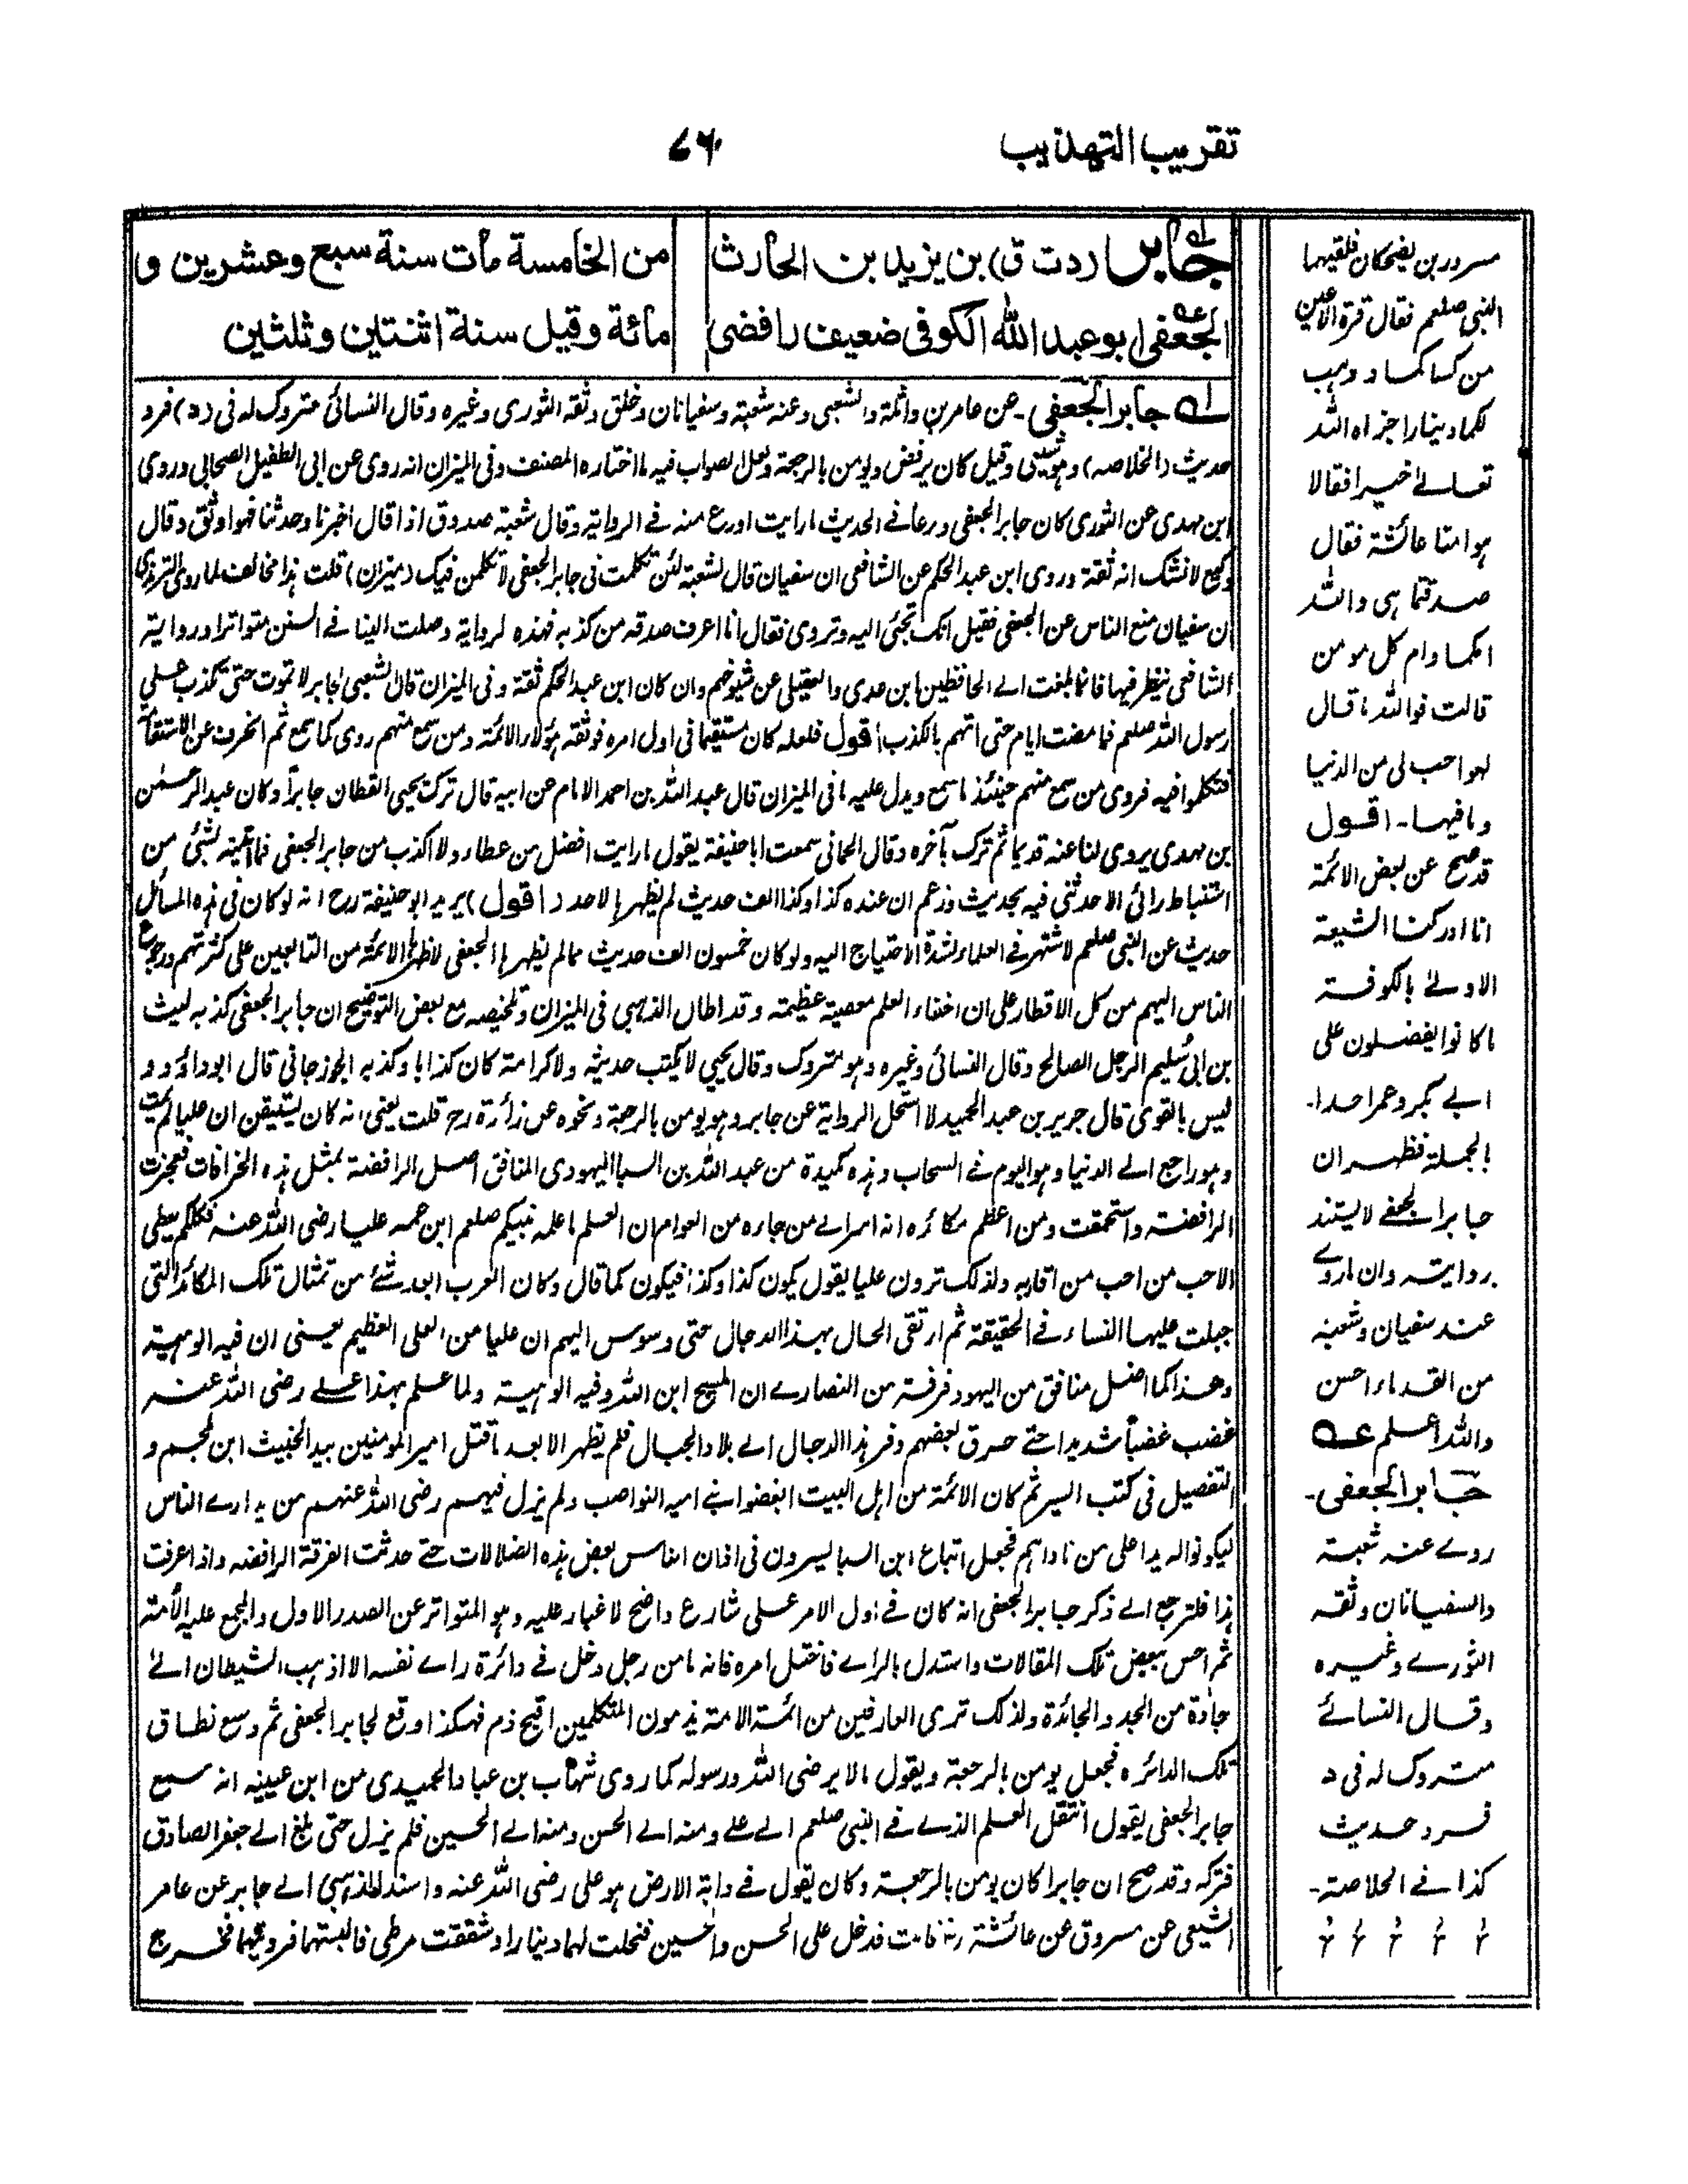 تقريب التهذيب
٧٦
جابر (د ت ق) بن يزيد بن الحارث
الجعفى ابو عبد الله الكوفى ضعيف رافضى
من الخامسة مات سنة سبع وعشرين و
مائة وقيل سنة اثنتين وثلثين
له جابر الجعفى ـ عن عامر بن واثلة والشعبى وعنه شعبة وسفيانان وخلق وثقه الثورى وغيره وقال النسائى متروك له فى (د) فرد
حديث (الخلاصه) وهو شيعى وقيل كان يرفض ويومن بالرجعة ولعل الصواب فيه ما اختاره المصنف وفى الميزان انه روى عن ابى الطفيل الصحابى وروى
ابن مهدى عن الثورى كان جابر الجعفى ورعا فے الحديث ما رايت اورع منه فے الرواية وقال شعبة صدوق اذا قال اخبرنا وحدثنا فهو اوثق وقال
وكيع لا نشك انه ثقة وروى ابن عبد الحكم عن الشافعى ان سفيان قال لشعبة لئن تكلمت فى جابر الجعفى لا تكلمن فيك (ميزان) قلت هذا مخالف لما روى الترمذى
ان سفيان منع الناس عن الجعفى فقيل انك تجئى اليه وتروى فقال انا اعرف صدقه من كذبه فهذه لرواية وصلت الينا فے السنن متواترا ورواية
الشافعى ينظر فيها فانما بلغت الے الحافظين ابن عدى والعقيلى عن شيوخهم وان كان ابن عبد الحكم ثقة وفى الميزان قال الشعبى لجابر لا تموت حتى تكذب على
رسول الله صلعم فما مضت ايام حتى اتهم بالكذب اقول فلعله كان مستقيما فى اول امره فوثقه هؤلاء الائمة ومن سمع منهم روى كما سمع ثم انحرف عن الاستقامة
فتكلموا فيه فروى من سمع منهم حينئذ ما سمع ويدل عليه ما فى الميزان قال عبد الله بن احمد الامام عن ابيه قال ترك يحيى القطان جابراً وكان عبد الرحمن
بن مهدى يروى لنا عنه قديما ثم ترك بآخره وقال الحمانى سمعت ابا حنيفة يقول ما رايت افضل من عطاء ولا اكذب من جابر الجعفى فما اتيته بشئ من
استنباط رائى الا حدثنى فيه بحديث وزعم ان عنده كذا وكذا الف حديث لم يظهرها لاحد (اقول) يريد ابو حنيفة رح انه لو كان فى هذه المسائل
حديث عن النبى صلعم لاشتهر فے العلماء لشدة الاحتياج اليه ولو كان خمسون الف حديث مما لم يظهرها الجعفى لاظهرها الائمة من التابعين على كثرتهم ورجوع
الناس اليهم من كل الاقطار على ان اخفاء العلم معصية عظيمة وقد اطال الذهبى فى الميزان وتلخيصه مع بعض التوضيح ان جابر الجعفى كذبه ليث
بن ابى سُليم الرجل الصالح وقال النسائى وغيره وهو متروك وقال يحيى لا يكتب حديثه ولا كرامة كان كذابا وكذبه الجوزجانى قال ابو داؤد و
ليس بالقوى قال جرير بن عبد الحميد لا استحل الرواية عن جابر وهو يومن بالرجعة ونحوه عن زائدة رح قلت يعنى انه كان يستيقن ان عليا لم يمت
وهو راجع الے الدنيا وهو اليوم فے السحاب وهذه كميدة من عبد الله بن السبا اليهودى المنافق اضل الرافضة بمثل هذه الخرافات فعجزت
الرافضة واستحمقت ومن اعظم مكائره انه اسر الے من جاءه من العوام ان العلم ما علمه نبيكم صلعم ابن عمه عليا رضى الله عنه فكلكم يعطى
الاحب من احب من اقاربه ولذلك ترون عليا يقول يكون كذا وكذا فيكون كما قال وكان العرب ابعد شئ من تمثال تلك المكائد التى
جبلت عليها النساء فے الحقيقة ثم ارتقى الحال بهذا الدجال حتى وسوس اليهم ان عليا من العلى العظيم يعنى ان فيه الوهية
وهذا كما اضل منافق من اليهود فرقة من النصارے ان المسيح ابن الله وفيه الوهية ولما علم بهذا على رضى الله عنه
غضب غضباً شديدا حتے حرق بعضهم وفر هذا الدجال الے بلاد الجبال فلم يظهر الا بعد ما قتل امير المومنين بيد الخبيث ابن ملجم و
التفصيل فى كتب السير ثم كان الائمة من اهل البيت ابغضوا بنے اميه النواصب ولم يزل فيهم رضى الله عنهم من يدارے الناس
ليكونوا له يدا على من ناداهم فجعل اتباع ابن السبا يسرون فى اذان الناس بعض هذه الضلالات حتے حدثت الفرقة الرافضه واذا عرفت
هذا فلترجع الے ذكر جابر الجعفى انه كان فے اول الامر على شارع واضح لا غبار عليه وهو المتواتر عن الصدر الاول والمجمع عليه الأمة
ثم احس ببعض تلك المقالات واستدل بالراے فاختل امره فانه ما من رجل دخل فے دائرة راے نفسه الا اذهب الشيطان الے
جادة من الجد والجائدة ولذلك ترى العارفين من ائمة الامة يذمون المتكلمين اقبح ذم فهكذا وقع لجابر الجعفى ثم وسع نطاق
تلك الدائره فجعل يومن بالرجعة ويقول ما لا يرضى الله ورسوله كما روى شهاب بن عباد الحميدى من ابن عيينه انه سمع
جابر الجعفى يقول انتقل العلم الذے فے النبى صلعم الے على ومنه الے الحسن ومنه الے الحسين فلم يزل حتى بلغ الے جعفر الصادق
فتركه وقد صح ان جابرا كان يومن بالرجعة وكان يقول فے دابة الارض هو على رضى الله عنه واسند الذهبى الے جابر عن عامر
الشعبى عن مسروق عن عائشة قالت قد دخل على الحسن والحسين فنحلت لهما دينارا وشققت مرطى فالبستهما فرديهما فخرج
مسرورين يضحكان فلقيهما
النبى صلعم فقال قرة الاعين
من كساكما ووهب
لكما دينارا جزاه الله
تعالے خيرا فقالا
هو امنا عائشة فقال
صدقتما هى والله
امكما وام كل مومن
قالت فوالله ما قال
لهو احب لى من الدنيا
وما فيها ـ اقول
قد صح عن بعض الائمة
انا ادركنا الشيعة
الاولى بالكوفة
ما كانوا يفضلون على
ابى بكر وعمر احدا ـ
بالجملة فظهر ان
جابرا الجعفے لا يستند
بروايته وان ما روے
عند سفيان وشعبه
من القدماء احسن
والله اعلم عه
جابر الجعفى ـ
روے عنه شعبة
والسفيانان وثقه
الثورے وغيره
وقال النسائے
متروك له فى د
فرد حديث
كذا فے الخلاصة ـ